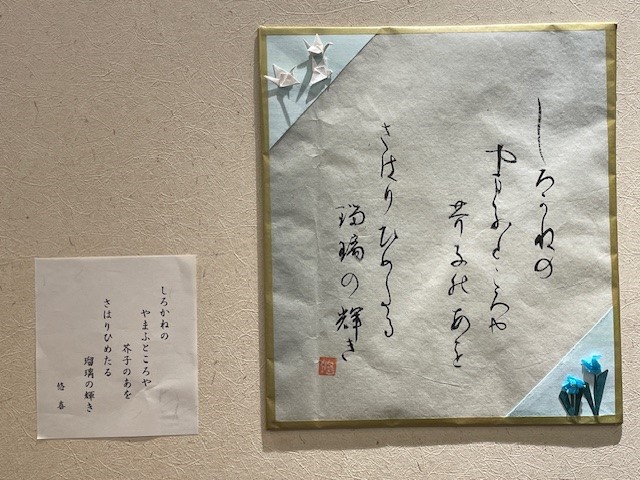 しろかねの
やまふところや
芥子のあを
さはりひめたる
瑠璃の輝き
しろかねの
やまふところや
芥子のあを
さはりひめたる
瑠璃の輝き
悠喜